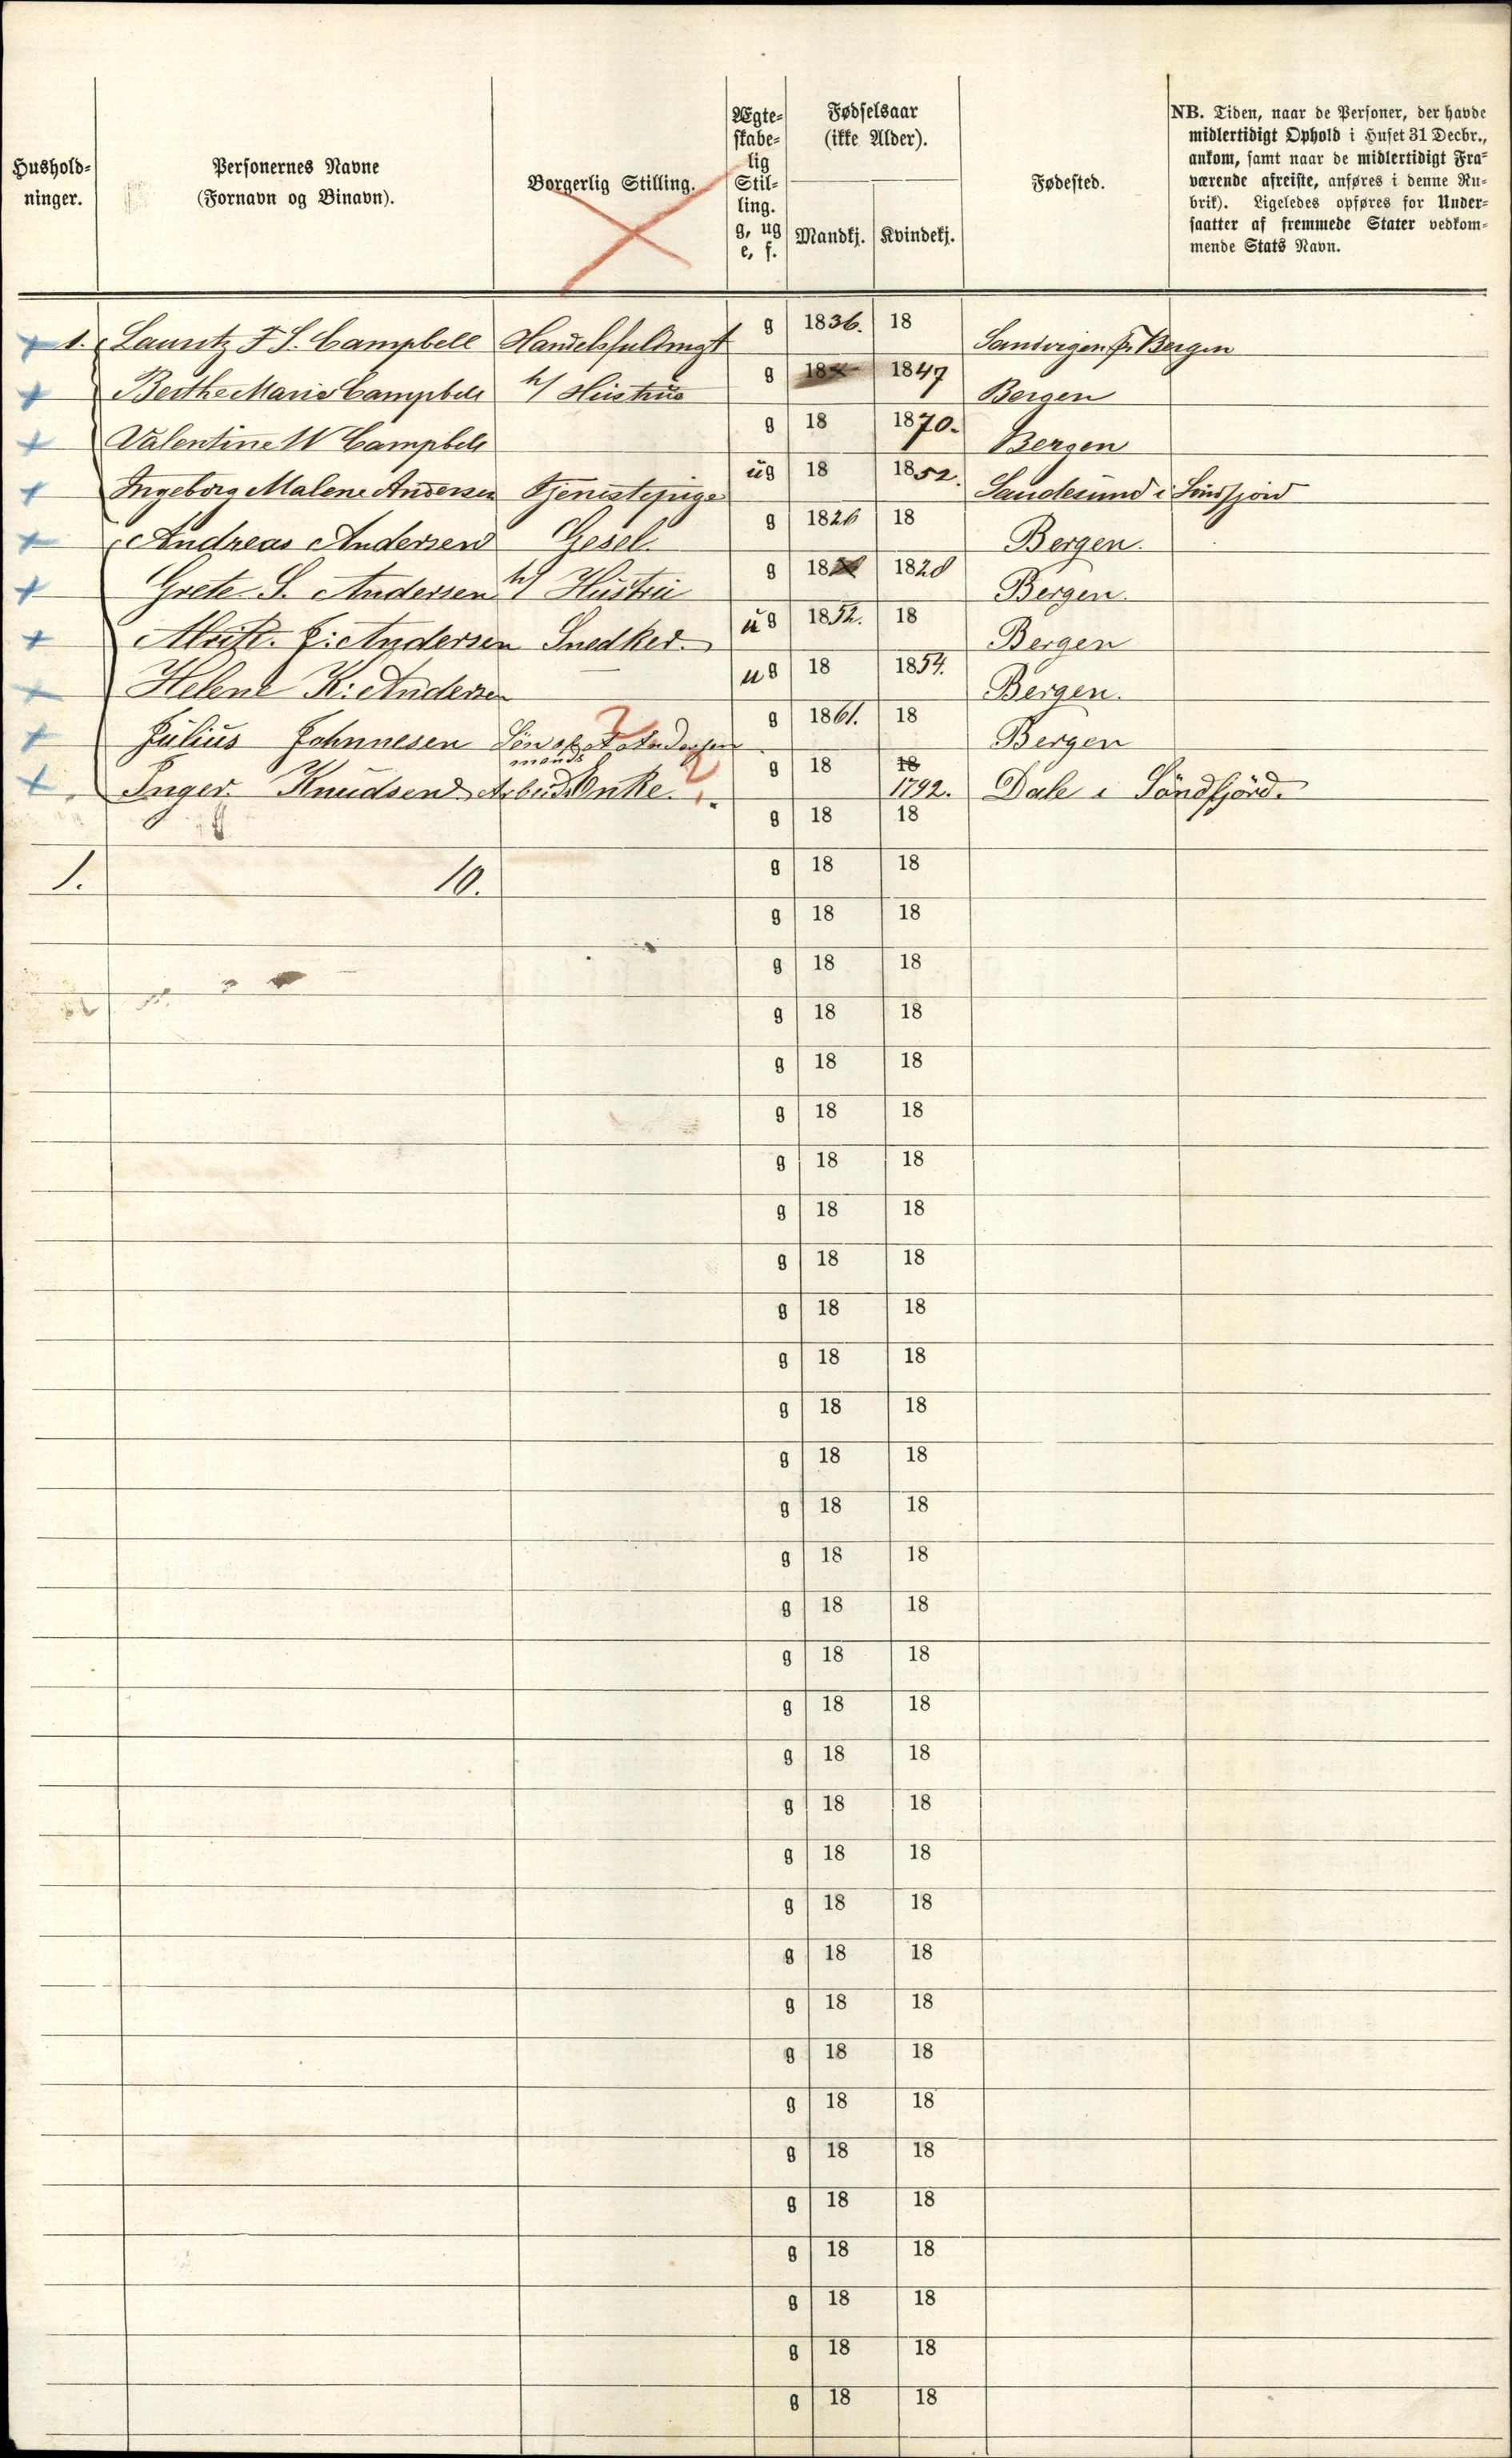 Hushold-
ninger.
Personernes Navne
(Fornavn og Binavn).
Borgerlig Stilling.
Ægte-
skabe-
lig
Stil-
ling.
g, ug
e, f.
Fødselsaar
(ikke Alder).
Mandkj.
Kvindekj.
Fødested.
NB. Tiden, naar de Personer, der havde
midlertidigt Ophold i Huset 31 Decbr.,
ankom, samt naar de midlertidigt Fra-
værende afreiste, anføres i denne Ru-
brik). Ligeledes opføres for Under-
saatter af fremmede Stater vedkom-
mende Stats Navn.
1. Lauritz F S. Campbell Handelsfuldmgt g 1836. 18 Sandvigen pr Bergen
Berthe Marie Campbell h/ Hustrue g 18 1847 Bergen
Valentine W Campbell g 18 1870. Bergen
Ingeborg Malene Andersen Tjenestepige ug 18 1852. Sandesund i Söndfjord
Andreas Andersen Gesel. g 1826 18 Bergen.
Grete S. Andersen h/ Hustru g 18 1828 Bergen.
Andersen Snedker. ug 1852. 18 Bergen
Helene K: Andersen ug 18 1854. Bergen.
Julius Johnnesen Søn af A Andersen g 1861. 18 Bergen
Inger Knudsen Arbeidsmands Enke. g 18 18 1792. Dale i Söndfjörd.
g 18 18
1. 10. g 18 18
g 18 18
g 18 18
g 18 18
g 18 18
g 18 18
g 18 18
g 18 18
g 18 18
g 18 18
g 18 18
g 18 18
g 18 18
g 18 18
g 18 18
g 18 18
g 18 18
g 18 18
g 18 18
g 18 18
g 18 18
g 18 18
g 18 18
g 18 18
g 18 18
g 18 18
g 18 18
g 18 18
g 18 18
g 18 18
g 18 18
g 18 18